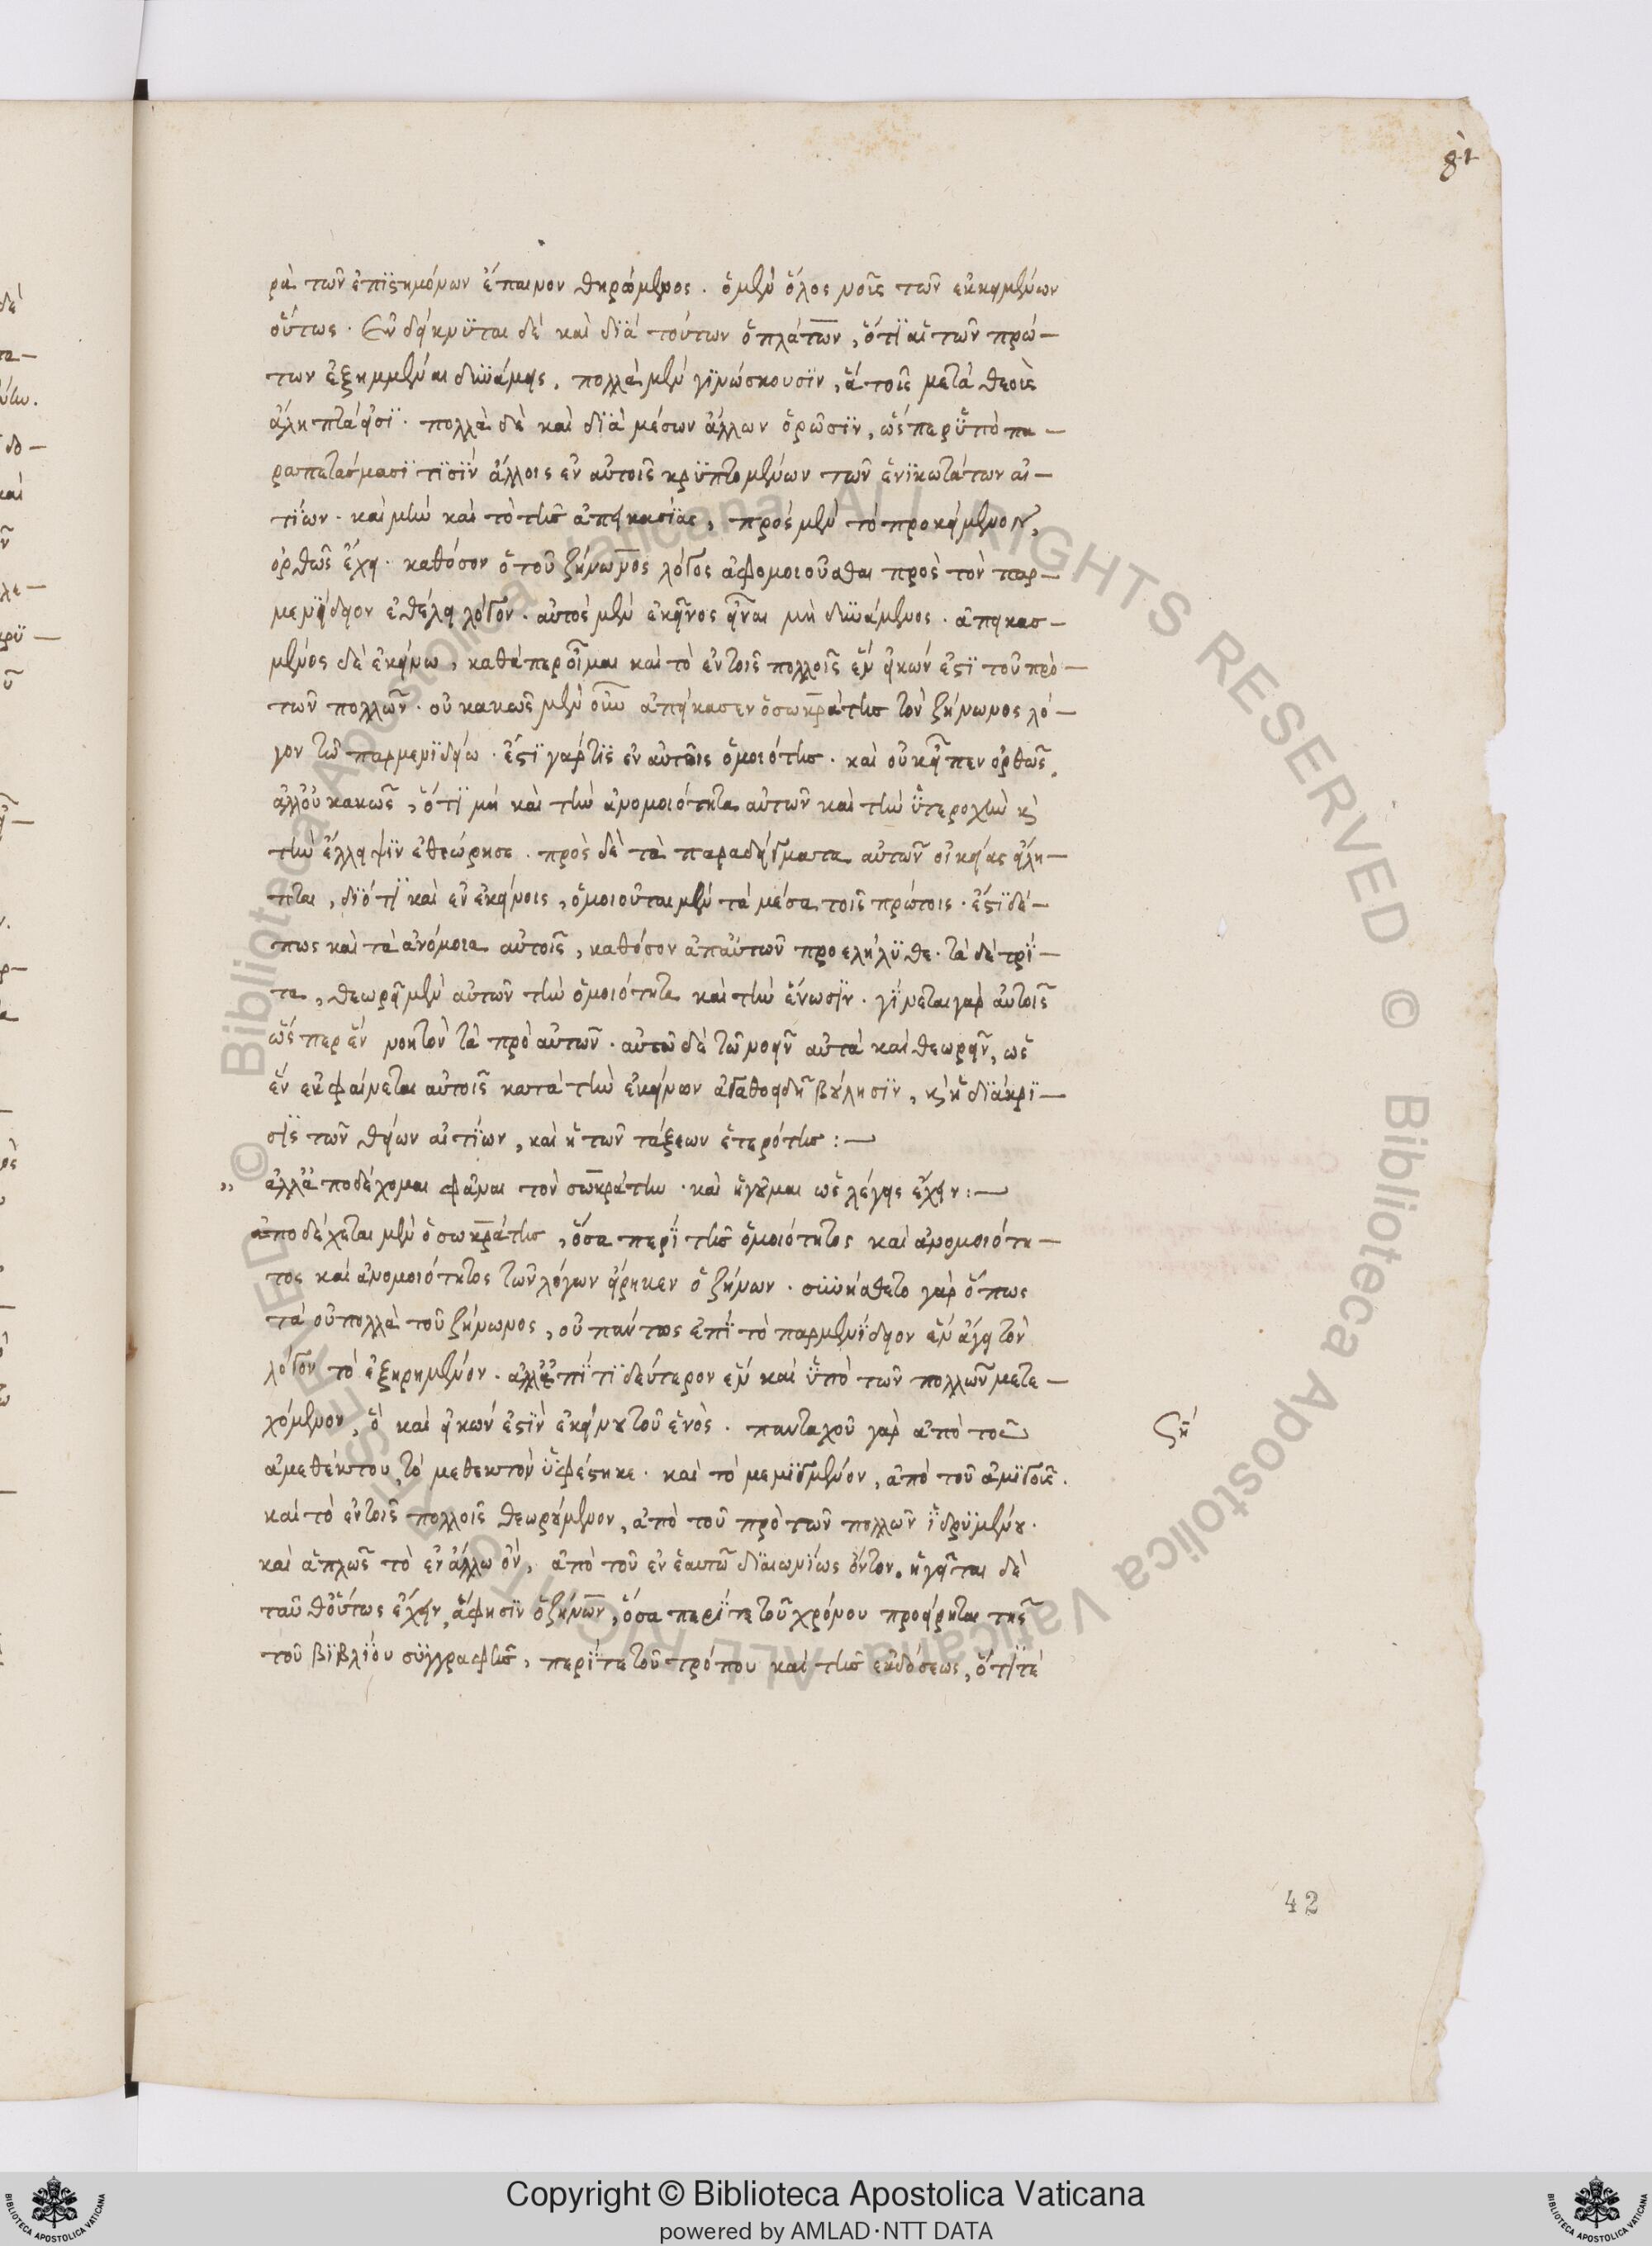 81
ρὰ τῶν ἐπιστημόνων ἔπαινον θηρώμενος. ὁ μὲν ὅλος νοῦς τῶν ἐκκειμένων
οὕτως. Ἐνδείκνυται δὲ καὶ διὰ τούτων ὁ πλάτων, ὅτι αἱ τῶν πρώ–
των ἐξημμέναι δυνάμεις, πολλὰ μὲν γινώσκουσιν, ἃ τοῖς μετὰ θεοὺς
ἄληπτά εἰσι. πολλὰ δὲ καὶ διὰ μέσων ἄλλων ὁρῶσιν, ὥσπερ ὑπὸ πα–
ραπετάσμασι τισὶν ἄλλοις ἐν αὐτοῖς κρυπτομένων τῶν ἑνικωτάτων αἰ–
τίων. καὶ μὴν καὶ τὸ τῆς ἀπεικασίας, πρὸς μὲν τὸ προκείμενον,
ὀρθῶς ἔχει. καθόσον ὁ τοῦ ζήνωνος λόγος ἀφομοιοῦσθαι πρὸς τὸν παρ–
μενίδειον ἐθέλει λόγον. αὐτὸς μὲν ἐκεῖνος εἶναι μὴ δυνάμενος. ἀπεικασ–
μένος δὲ ἐκείνω, καθάπερ οἶμαι καὶ τὸ ἐν τοῖς πολλοῖς ἓν εἰκών ἐστι τοῦ πρὸ–
τῶν πολλῶν. οὐ κακῶς μὲν οὖν ἀπείκασεν ὁ σωκράτης τὸν ζήνωνος λό–
γον τῶ παρμενιδείω. ἔστι γάρ τις ἐν αὐτοῖς ὁμοιότης. καὶ οὐκ εἶπεν ὀρθῶς,
ἀλλ' οὐ κακῶς, ὅτι μὴ καὶ τὴν ἀνομοιότητα αὐτῶν καὶ τὴν ὑπεροχὴν κ̀
τὴν ἔλλειψιν ἐθεώρησε. πρὸς δὲ τὰ παραδείγματα αὐτῶν οἰκείας εἴλη–
πται, διότι καὶ ἐν ἐκείνοις, ὁμοιοῦται μὲν τὰ μέσα τοῖς πρώτοις. ἔστι δέ–
πως καὶ τὰ ἀνόμοια αὐτοῖς, καθόσον ἀπ' αὐτῶν προελήλυθε. τὰ δὲ τρί–
τα, θεωρεῖ μὲν αὐτῶν τὴν ὁμοιότητα καὶ τὴν ἕνωσιν. γίνεται γὰρ αὐτοῖς
ὥσπερ ἓν νοητὸν τὰ πρὸ αὐτῶν. αὐτῶ δὲ τῶ νοεῖν αὐτὰ καὶ θεωρεῖν, ὡς
ἓν ἐκφαίνεται αὐτοῖς κατὰ τὴν ἐκείνων ἀγαθοειδῆ βούλησιν, κ̀ ἡ διάκρι–
σις τῶν θείων αἰτίων, καὶ ἡ τῶν τάξεων ἑτερότης :—
,, ἀλλ' ἀποδέχομαι φάναι τὸν σωκράτην. καὶ ἡγοῦμαι ὡς λέγεις ἔχειν :—
ἀποδέχεται μὲν ὁ σωκράτης, ὅσα περὶ τῆς ὁμοιότητος καὶ ἀνομοιότη–
τος καὶ ἀνομοιότητος τῶν λόγων εἴρηκεν ὁ ζήνων. συνήθετο γὰρ ὅπως
τὰ οὐ πολλὰ τοῦ ζήνωνος, οὐ πάντως ἐπὶ τὸ παρμενίδειον ἓν ἄγει τὸν
λόγον τὸ ἐξηρημένον. ἀλλ' ἐπί τι δεύτερον ἓν καὶ ὑπὸ τῶν πολλῶν μετε–
χόμενον, ὃ καὶ εἰκών ἐστιν ἐκείνου τοῦ ἑνός. πανταχοῦ γὰρ ἀπὸ τοῦ
ἀμεθέκτου, τὸ μεθεκτὸν ὑφέστηκε. καὶ τὸ μεμιγμένον, ἀπὸ τοῦ ἀμιγοῦς.
καὶ τὸ ἐν τοῖς πολλοῖς θεωρούμενον, ἀπὸ τοῦ πρὸ τῶν πολλῶν ἱδρυμένου.
καὶ ἁπλῶς τὸ ἐν ἄλλω ὂν, ἀπὸ τοῦ ἐν ἑαυτῶ διαιωνίως ὄντος. ἡγεῖται δὲ
ταῦθ' οὕτως ἔχειν, ἅ φησιν ὁ ζήνων, ὅσα περί τε τοῦ χρόνου προείρηται τῆς
τοῦ βιβλίου συγγραφῆς, περί τε τοῦ τρόπου καὶ τῆς ἐκδόσεως, ὅτι τέ
42
Copyright © Biblioteca Apostolica Vaticana
powered by AMLAD·NTT DATA